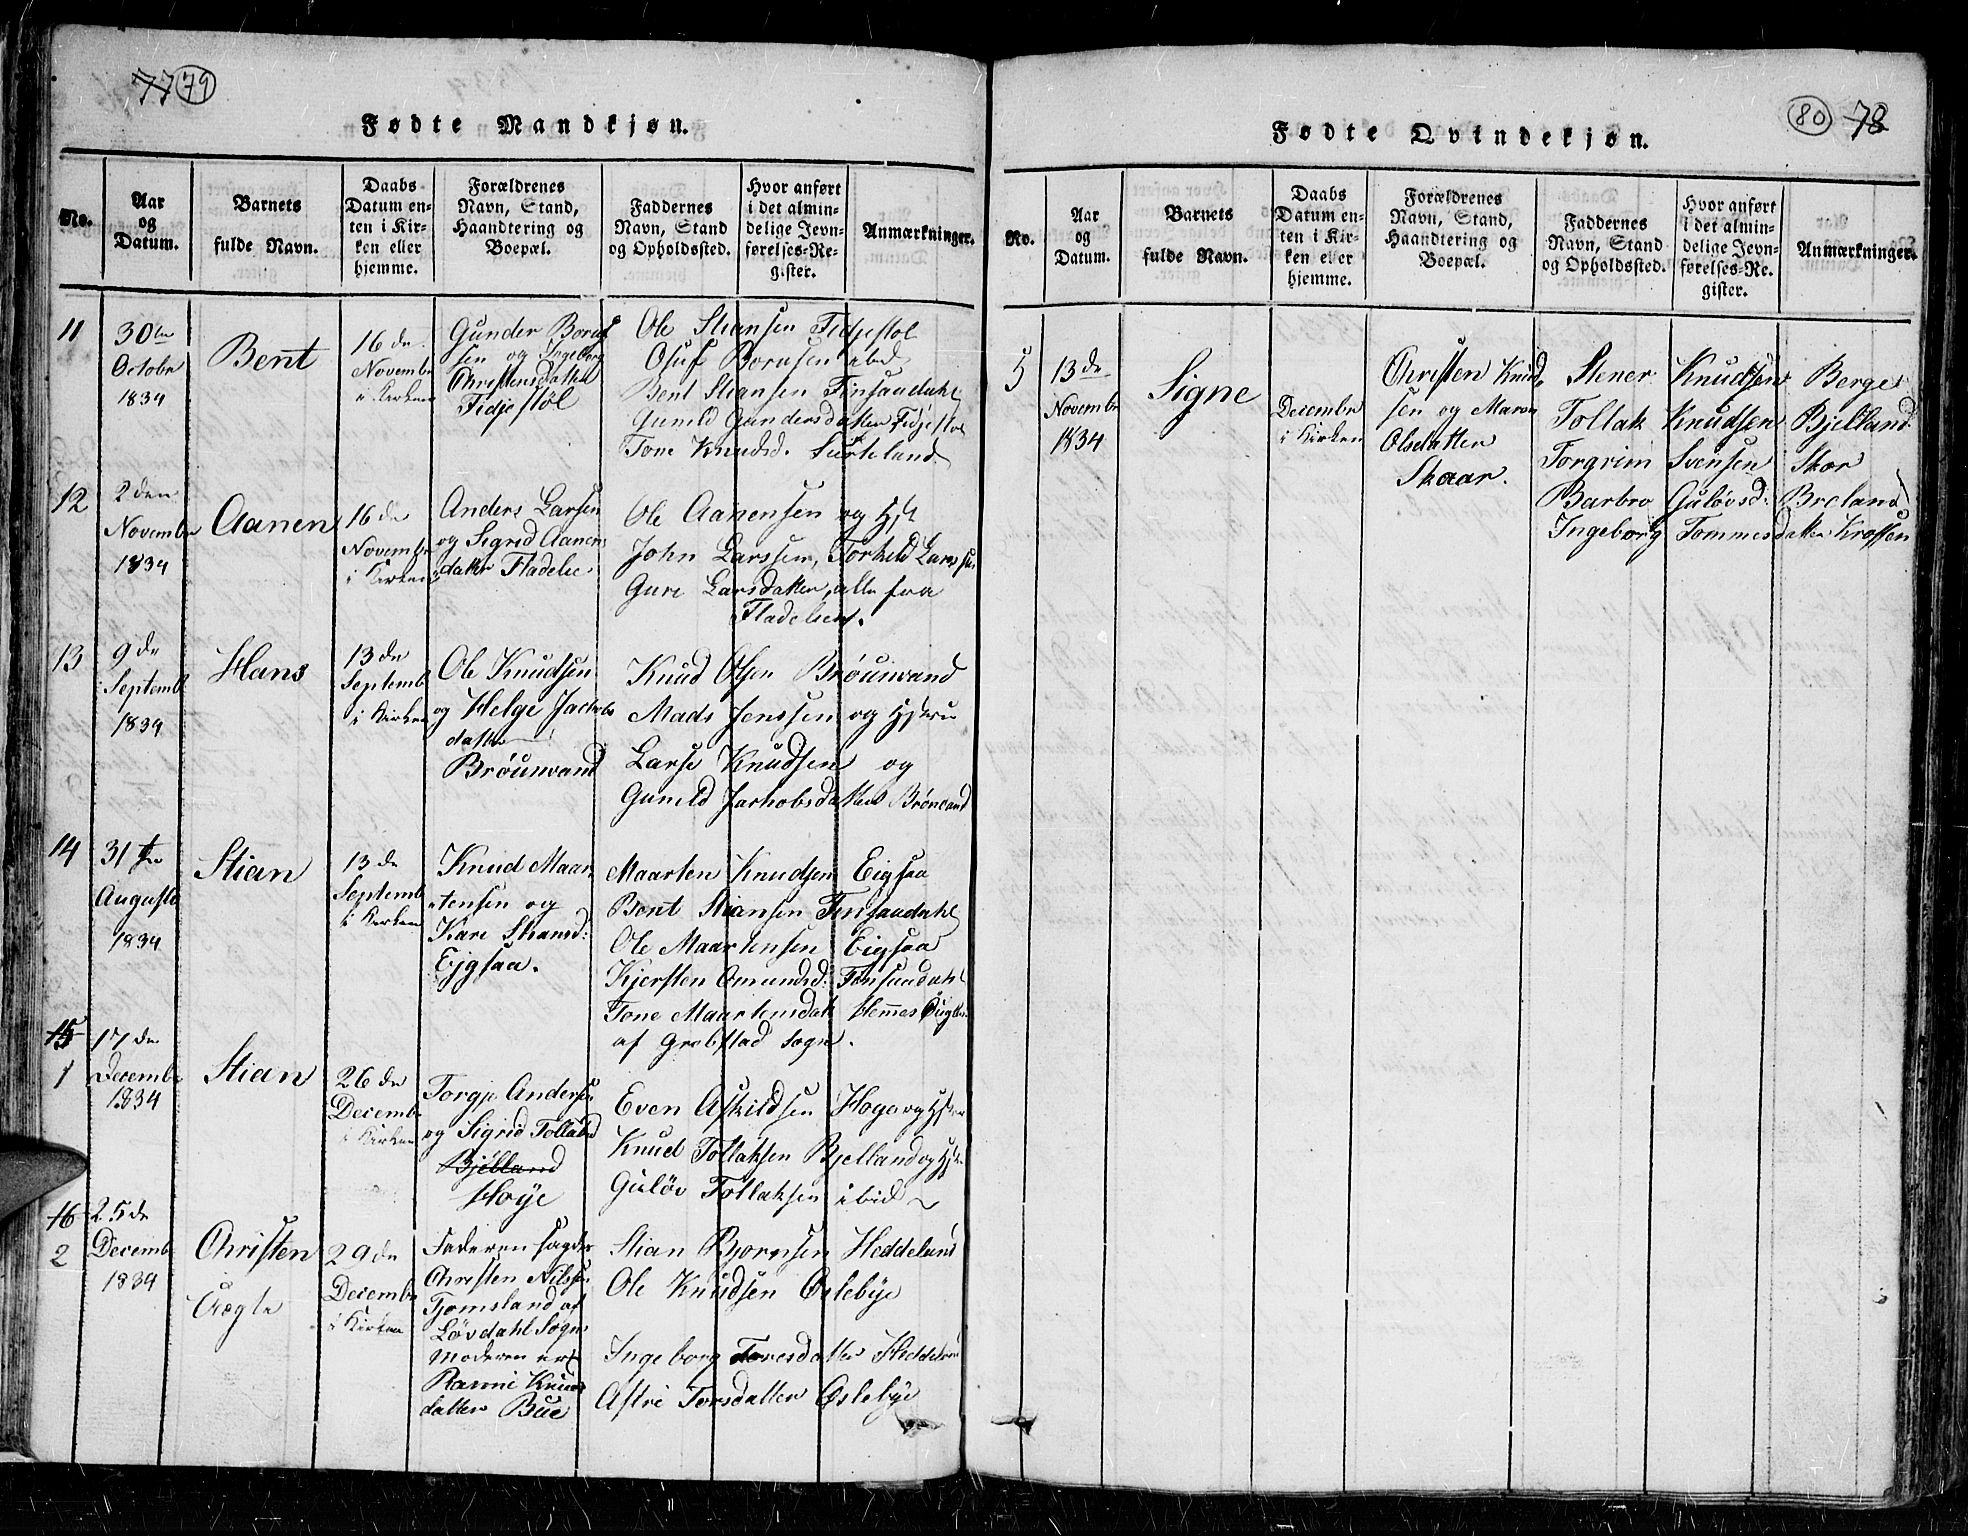 77 79
Fødte Mandkjøn.
No.
Aar
og
Datum.
Barnets
fulde Navn.
Daabs
Datum en-
ten i Kir-
ken eller
hjemme.
Forældrenes
Navn, Stand,
Haandtering og
Boepæl.
Faddernes
Navn, Stand
og Opholdssted.
Hvor anført
i det almin-
delige Jevn-
førelses-Re-
gister.
Anmærkninger.
11
30te
Octobr
1834
Bent
16 de
Novembr
i Kirken
Gunder
sen og Ingeborg
Christensdatter
Fidjestøl
Ole Stiansen Fidjestøl
Osuf ibid
Bent Stiansen Finsaadahl
Gunild Gundersdatter Fidjestøl
Tone Knudsd.
12
2 den
Novembr
1834
Aanen
16 de
Novembr
i Kirken
Anders Larsen
og Sigrid Aanens
datter Fladelie
Ole Aanensen og
John Larssen, Torkild Larssen
Guri Larsdatter, alle fra
Fladelien.
13
9 de
Septembr
1834
Hans
13 de
Septembr
i Kirken
Ole Knudsen
og Helge Jackobs
datter
Brøunvand
Knud Olsen Brøunvand
Mads Jenssen og
Larse Knudsen og
Gunild Brønvand
14
31 te
Augusto
1834
Stian
13 de
Septembr
i Kirken
Knud Maar-
tensen og
Kari Stiansd:
Ejgsaa.
Maarten Knudsen Eigsaa
Bent Stiansen Finsaadahl
Ole Maartensen Eigsaa
Kjersten Omundsd: Finsaadahl
Tone Maartensdatt
af sogn.
15
1
17 de
Decembr
1834
Stian
26 de
Decembr
i Kirken
Torgje Andersen
og Sigrid Tollaksd
Bjelland
Høye
Even Askildsen og
Knud Tollaksen Bjelland og
Guløv Tollaksen ibid
16
2
25 de
Decembr
1834
Christen
Uægte
29 de
Decembr
i Kirken
Faderen
Christen Nilssen
Tjomsland af
Løvdahl Sogn
Moderen er
Knuds
datter Bue
Stian Bjornsen Heddeland
Ole Knudsen Øslebye
Ingeborg Heddeland
Astri Torsdatter Øslebye
80 78
Fødte Qvindekjøn.
No.
Aar
og
Datum.
Barnets
fulde Navn.
Daabs
Datum en-
ten i Kir-
ken eller
hjemme.
Forældrenes
Navn, Stand,
Haandtering og
Boepæl.
Faddernes
Navn, Stand
og Opholdssted.
Hvor anført
i det almin-
delige Jevn-
førelses-Re-
gister.
Anmærkninger.
5
13 de
Novembr
1834
Signe
Decembr
i Kirken
Christen Knud-
sen og Maren
Olsdatter
Skaar.
Stener Knudsen Berge
Tollak Knudsen Bjelland
Torgrim Svensen Skor
Barbro Guløvsd: Breland
Ingeborg Tommesdatter Krossen